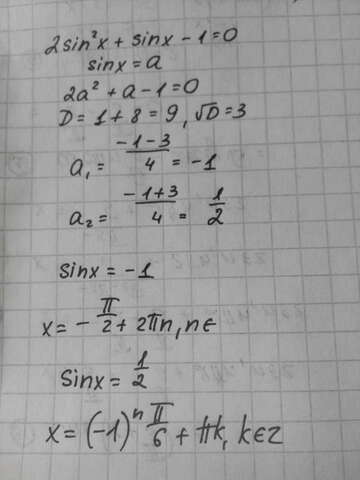 2sin²x + sinx - 1 = 0
sinx = a
2a² + a - 1 = 0
D = 1 + 8 = 9, √D = 3
a₁ = (-1-3)/4 = -1
a₂ = (-1+3)/4 = 1/2
sinx = -1
x = - π/2 + 2πn, n ∈
sinx = 1/2
x = (-1)ⁿ π/6 + πk, k ∈ z